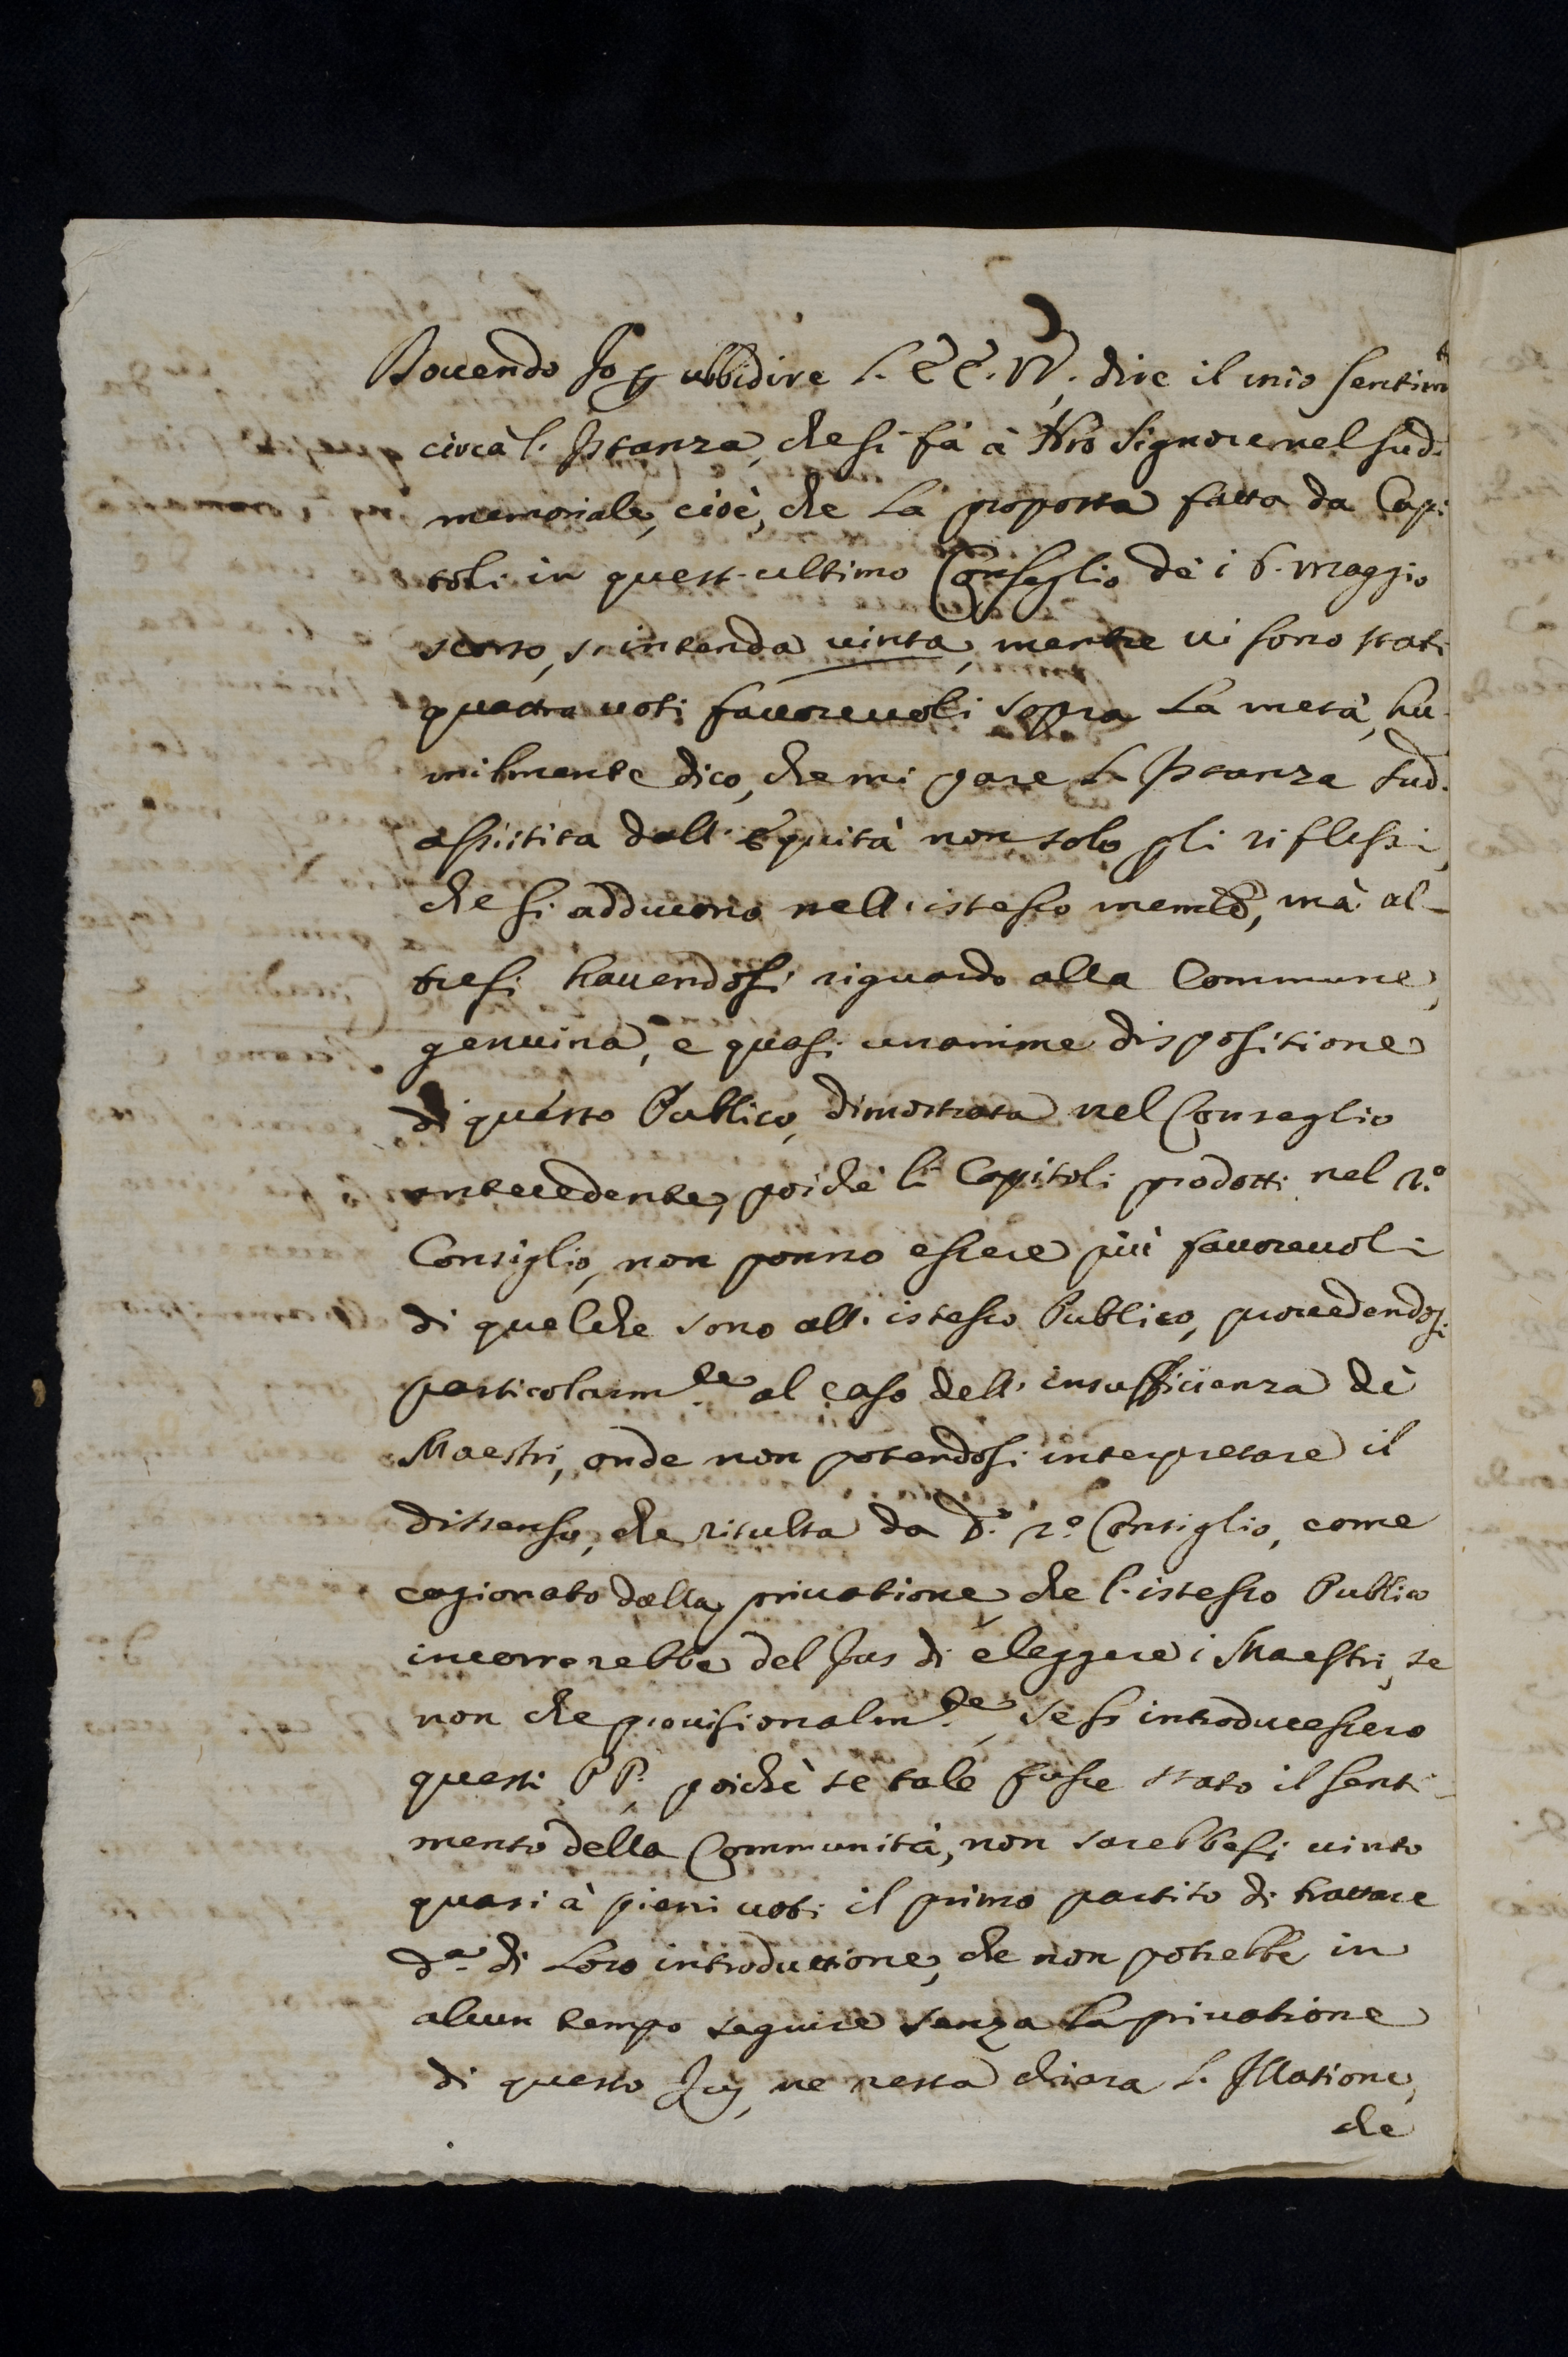 Dovendo Io p ubbidire l'EE. VV, dire il mio sentim.to
circa l'Istanza, che si fà à Nro Signore nel sud.
memoriale, cioè, che la proposta fatta da Capi
toli in quest'ultimo Conseglio de i 6. Maggio
scorso, s'intenda vinta, mentre vi sono stati
quattro voti favorevoli sopra la metà, hu
milmente dico, che mi pare l'Istanza sud.
assistita dall'Equità non solo pli riflessi,
che si adducono nell'istesso memle, mà al-
tresi havendosi riguardo alla Commune,
genuina, e quasi unanime dispositione
di questo Publico, dimostrata nel Conseglio
antecedente, poiche li Capitoli prodotti nel 2.o
Consiglio, non ponno essere più favorevoli
di quelche sono all'istesso Publico, provedendosi
particolarm.te al caso dell'insufficienza dè
Maestri, onde non potendosi interpretare il
dissenso, che risulta da d.o 2.o Consiglio, come
cagionato dalla privatione che l'istesso Publico
incorrerebbe del Jus di eleggere i Maestri, se
non che provisionalm.te, se si introducessero
questi PP. poichè se tale fusse stato il senti-
mento della Communità, non sarebbesi vinto
quasi à pieni voti il primo partito di trattare
d.a di loro introduttione, che non potrebbe in
alcun tempo seguire senza la privatione
di questo Jus, ne resta chiara l'Illatione,
che